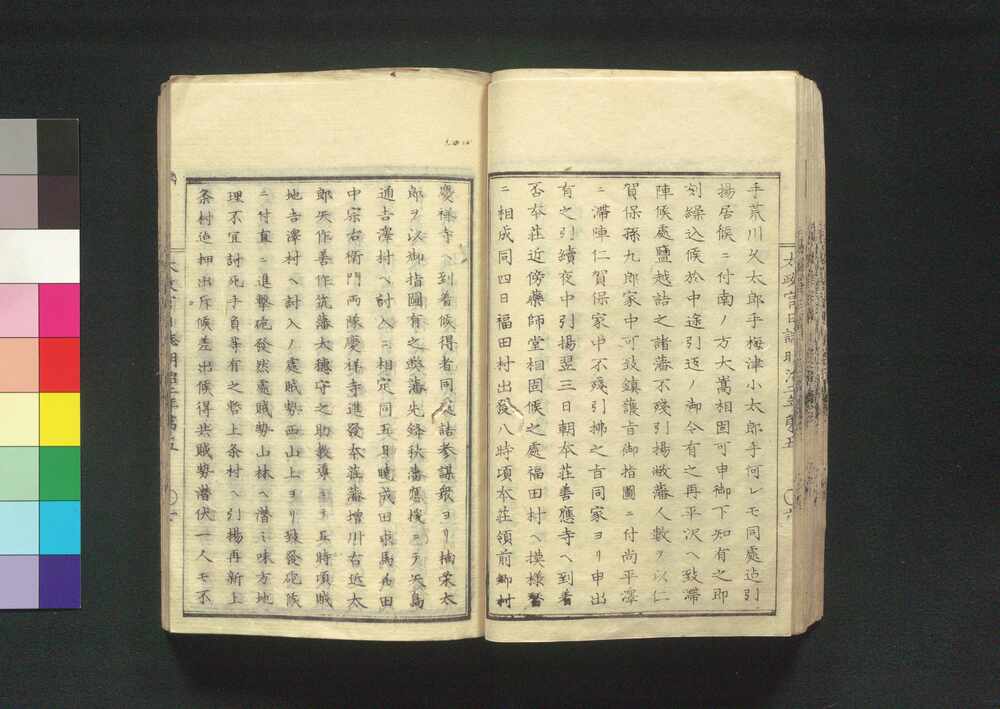 手荒川久太郎手梅津小太郎手何レモ同處迠引
揚居候ニ付南ノ方大萬相固可申御下知有之即
刻繰込候於中途引返ノ御令有之再平沢ヘ致滞
陣候處鹽越詰之諸藩不殘引揚敝藩人數ヲ以仁
賀保孫九郎家中可致鎮讓旨御指圖ニ付尚平澤
ニ滯陣仁賀保家中不殘引拂之旨同家ヨリ申出
有之引續夜中引揚翌三日朝本荘善應寺ヘ到着
否本荘近傍藥師堂相固候之處福田村ヘ摸樣替
ニ相成同四日福田村出發八時頃本荘領前郷村
慶祥寺ヘ到着候得者同處詰参謀衆ヨリ楠栄太
郎ヲ以御指圖有之敝藩先鋒秋藩應援ニテ矢島
通吉澤村ヘ討入ニ相定同五日曉成田求馬成田
中宗右衛門両隊慶祥寺進發本荘藩増川右近太
郎矢作善作筑藩大德守之助教導ニテ五時頃賊
地吉澤村ヘ討入ノ處賊勢西山上ヨリ頻發砲候
ニ付直ニ進擊砲發然處賊勢山林ヘ潜ミ味方地
理不宜討死手負等有之暫上条村ヘ引揚再新上
条村迠押出斥候差出候得共賊勢潜伏一人モ不